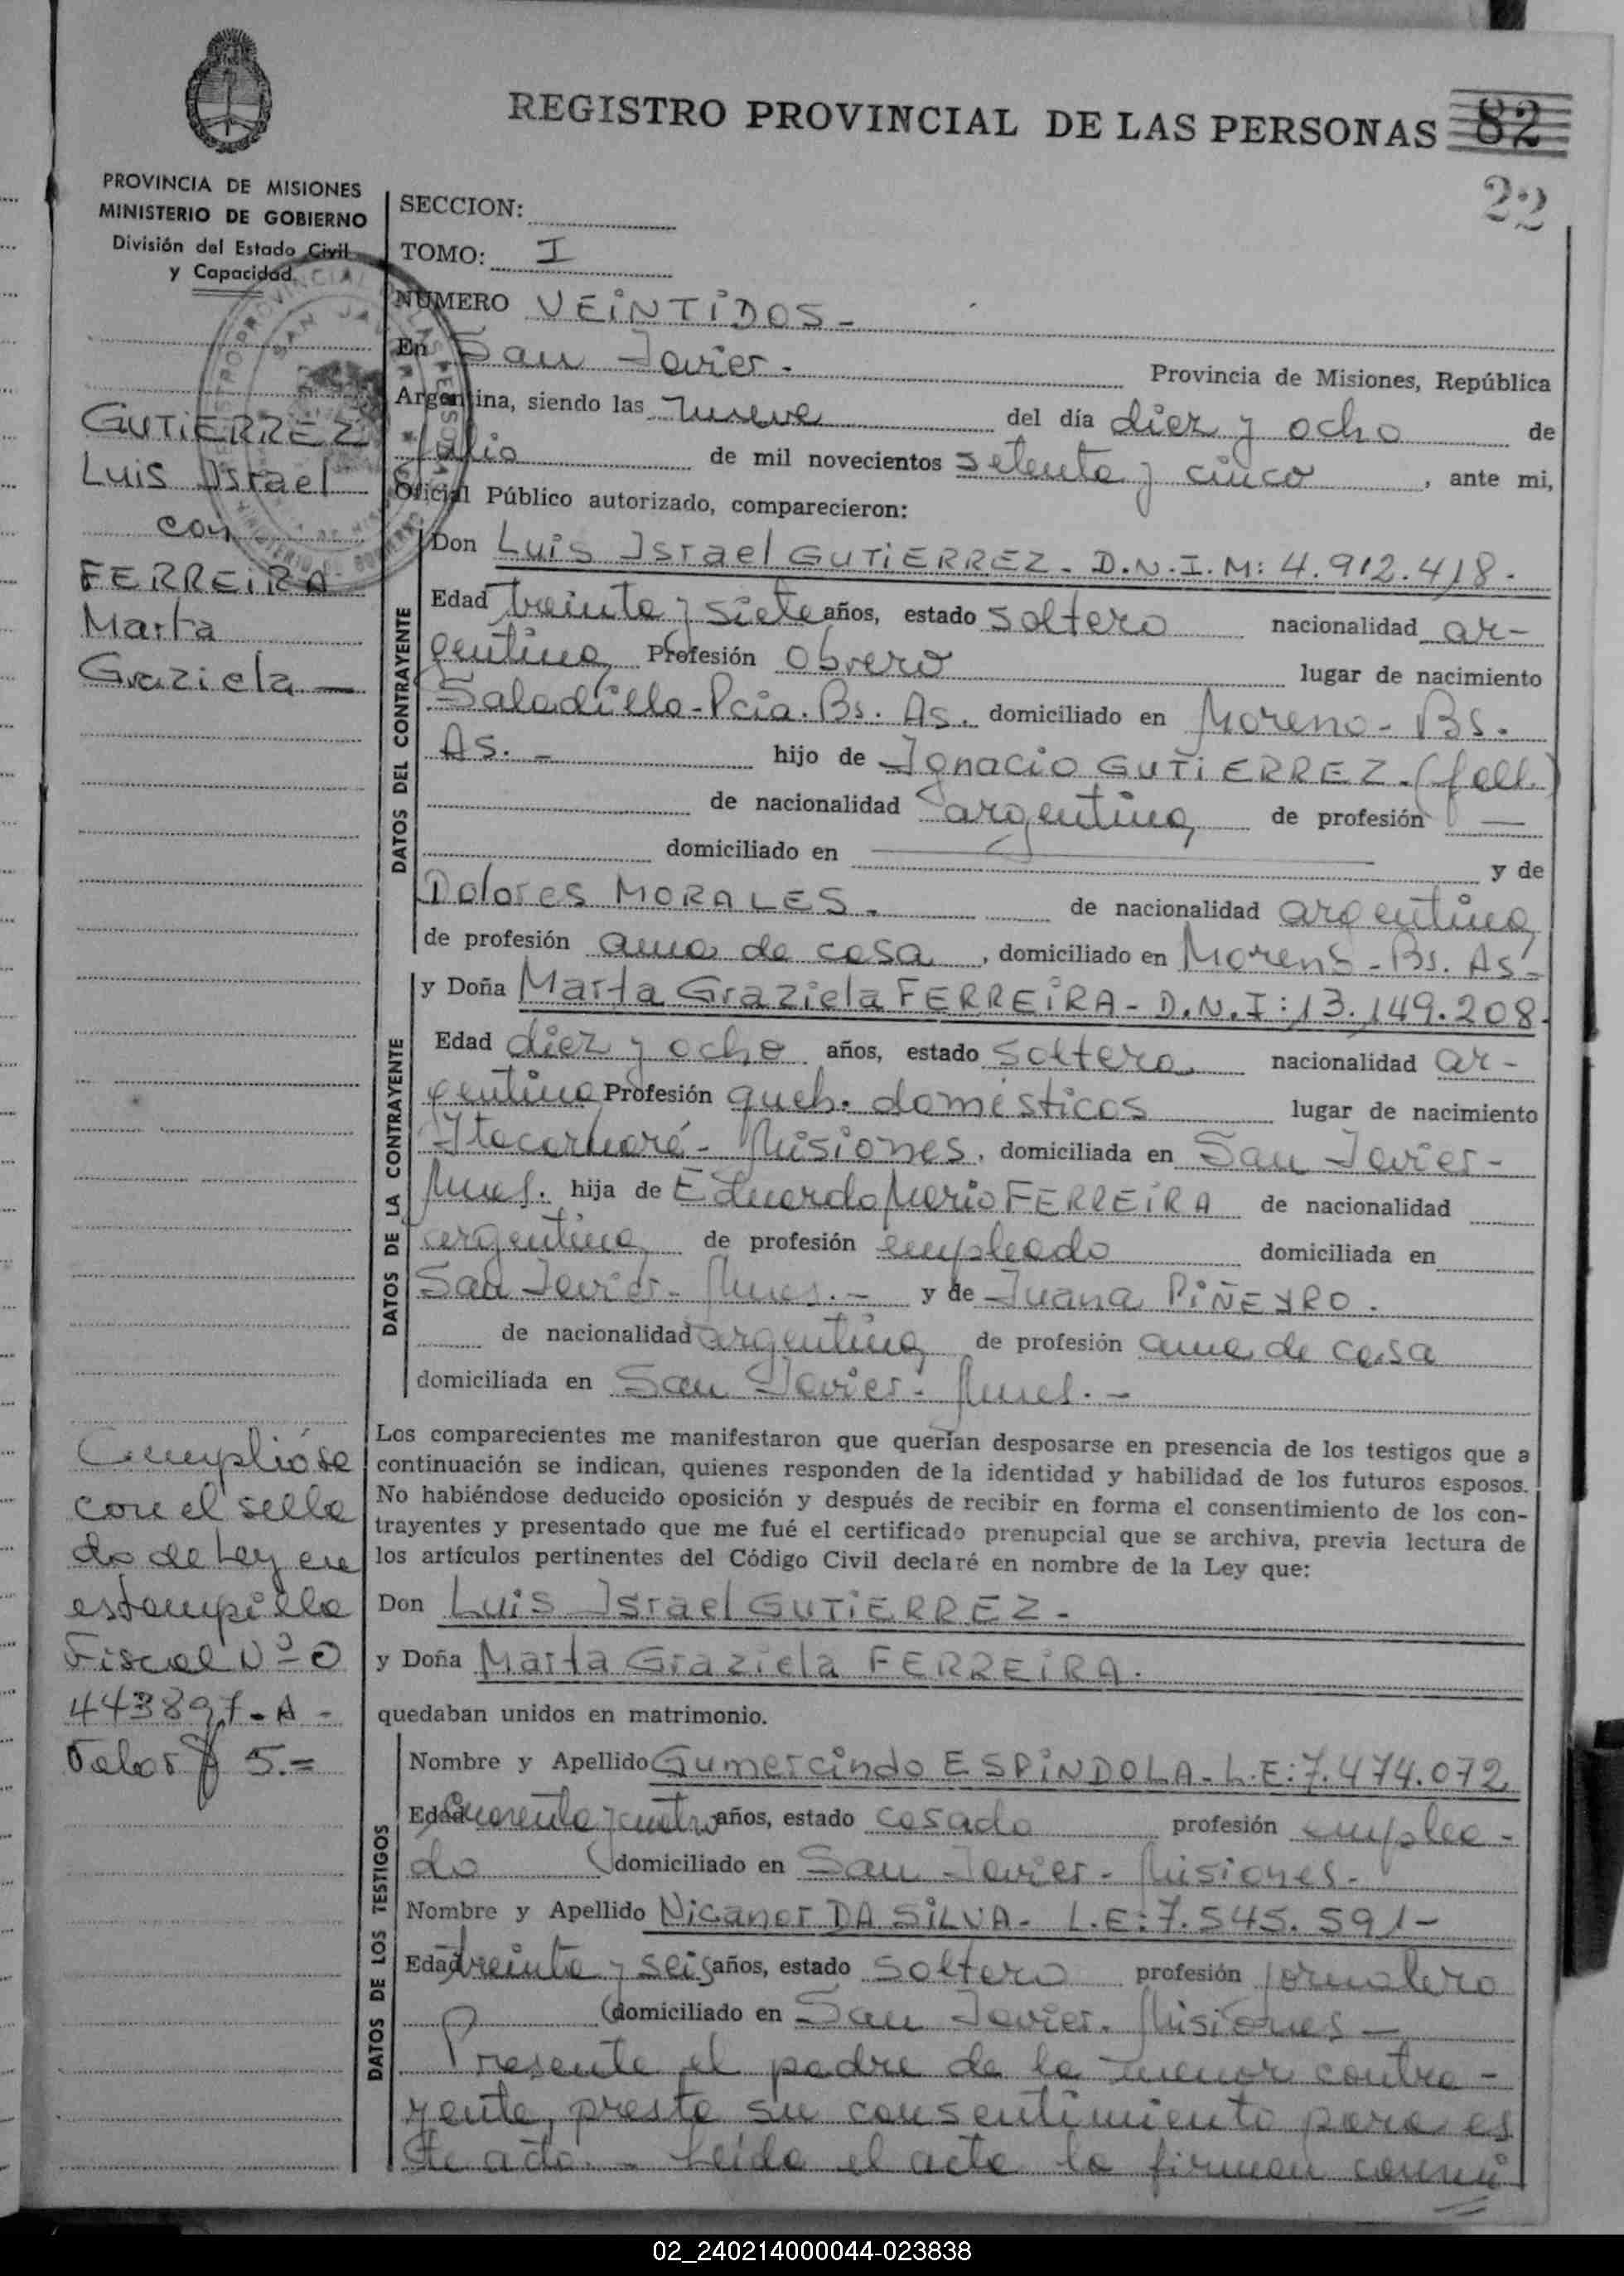 REGISTRO PROVINCIAL DE LAS PERSONAS 82
22
PROVINCIA DE MISIONES
MINISTERIO DE GOBIERNO
División del Estado Civil
y Capacidad
SECCION:
TOMO: I
NUMERO VEINTIDOS -
En San Javier - Provincia de Misiones, República
Argentina, siendo las nueve del día diez y ocho de
julio de mil novecientos setenta y cinco, ante mi,
Oficial Público autorizado, comparecieron:
GUTIERREZ
Luis Israel
con
FERREIRA
Marta
Graziela -
DATOS DEL CONTRAYENTE
Don Luis Israel GUTIERREZ - D.N.I.M: 4.912.418 -
Edad treinta y siete años, estado soltero nacionalidad ar-
gentina Profesión Obrero lugar de nacimiento
Saladillo - Pcia. Bs. As. domiciliado en Moreno - Bs.
As. - hijo de Ignacio GUTIERREZ - (fall.)
de nacionalidad argentina de profesión —
domiciliado en — y de
Dolores MORALES - de nacionalidad argentina
de profesión ama de casa, domiciliado en Moreno - Bs. As -
DATOS DE LA CONTRAYENTE
y Doña Marta Graziela FERREIRA - D.N.I: 13.149.208 -
Edad diez y ocho años, estado soltera nacionalidad ar-
gentina Profesión queh. domésticos lugar de nacimiento
Itacaruaré - Misiones, domiciliada en San Javier -
Mnes. hija de Eduardo Mario FERREIRA de nacionalidad
argentina de profesión empleado domiciliada en
San Javier - Mnes. - y de Juana PIÑEYRO.
de nacionalidad argentina de profesión ama de casa
domiciliada en San Javier - Mnes. -
Los comparecientes me manifestaron que querían desposarse en presencia de los testigos que a
continuación se indican, quienes responden de la identidad y habilidad de los futuros esposos.
No habiéndose deducido oposición y después de recibir en forma el consentimiento de los con-
trayentes y presentado que me fué el certificado prenupcial que se archiva, previa lectura de
los artículos pertinentes del Código Civil declaré en nombre de la Ley que:
Don Luis Israel GUTIERREZ -
y Doña Marta Graziela FERREIRA.
quedaban unidos en matrimonio.
Cumplióse
con el sella
do de Ley en
estampilla
Fiscal Nº 0
443897-A -
Valor $ 5.=
DATOS DE LOS TESTIGOS
Nombre y Apellido Gumercindo ESPINDOLA - L.E: 7.474.072
Edad cuarenta y cuatro años, estado casado profesión emplea-
do domiciliado en San Javier - Misiones -
Nombre y Apellido Nicanor DA SILVA - L.E: 7.545.591 -
Edad treinta y seis años, estado soltero profesión jornalero
domiciliado en San Javier - Misiones -
Presente el padre de la menor contra-
yente, presta su consentimiento para es
te acto. - Leída el acta la firman conmi
02_240214000044-023838